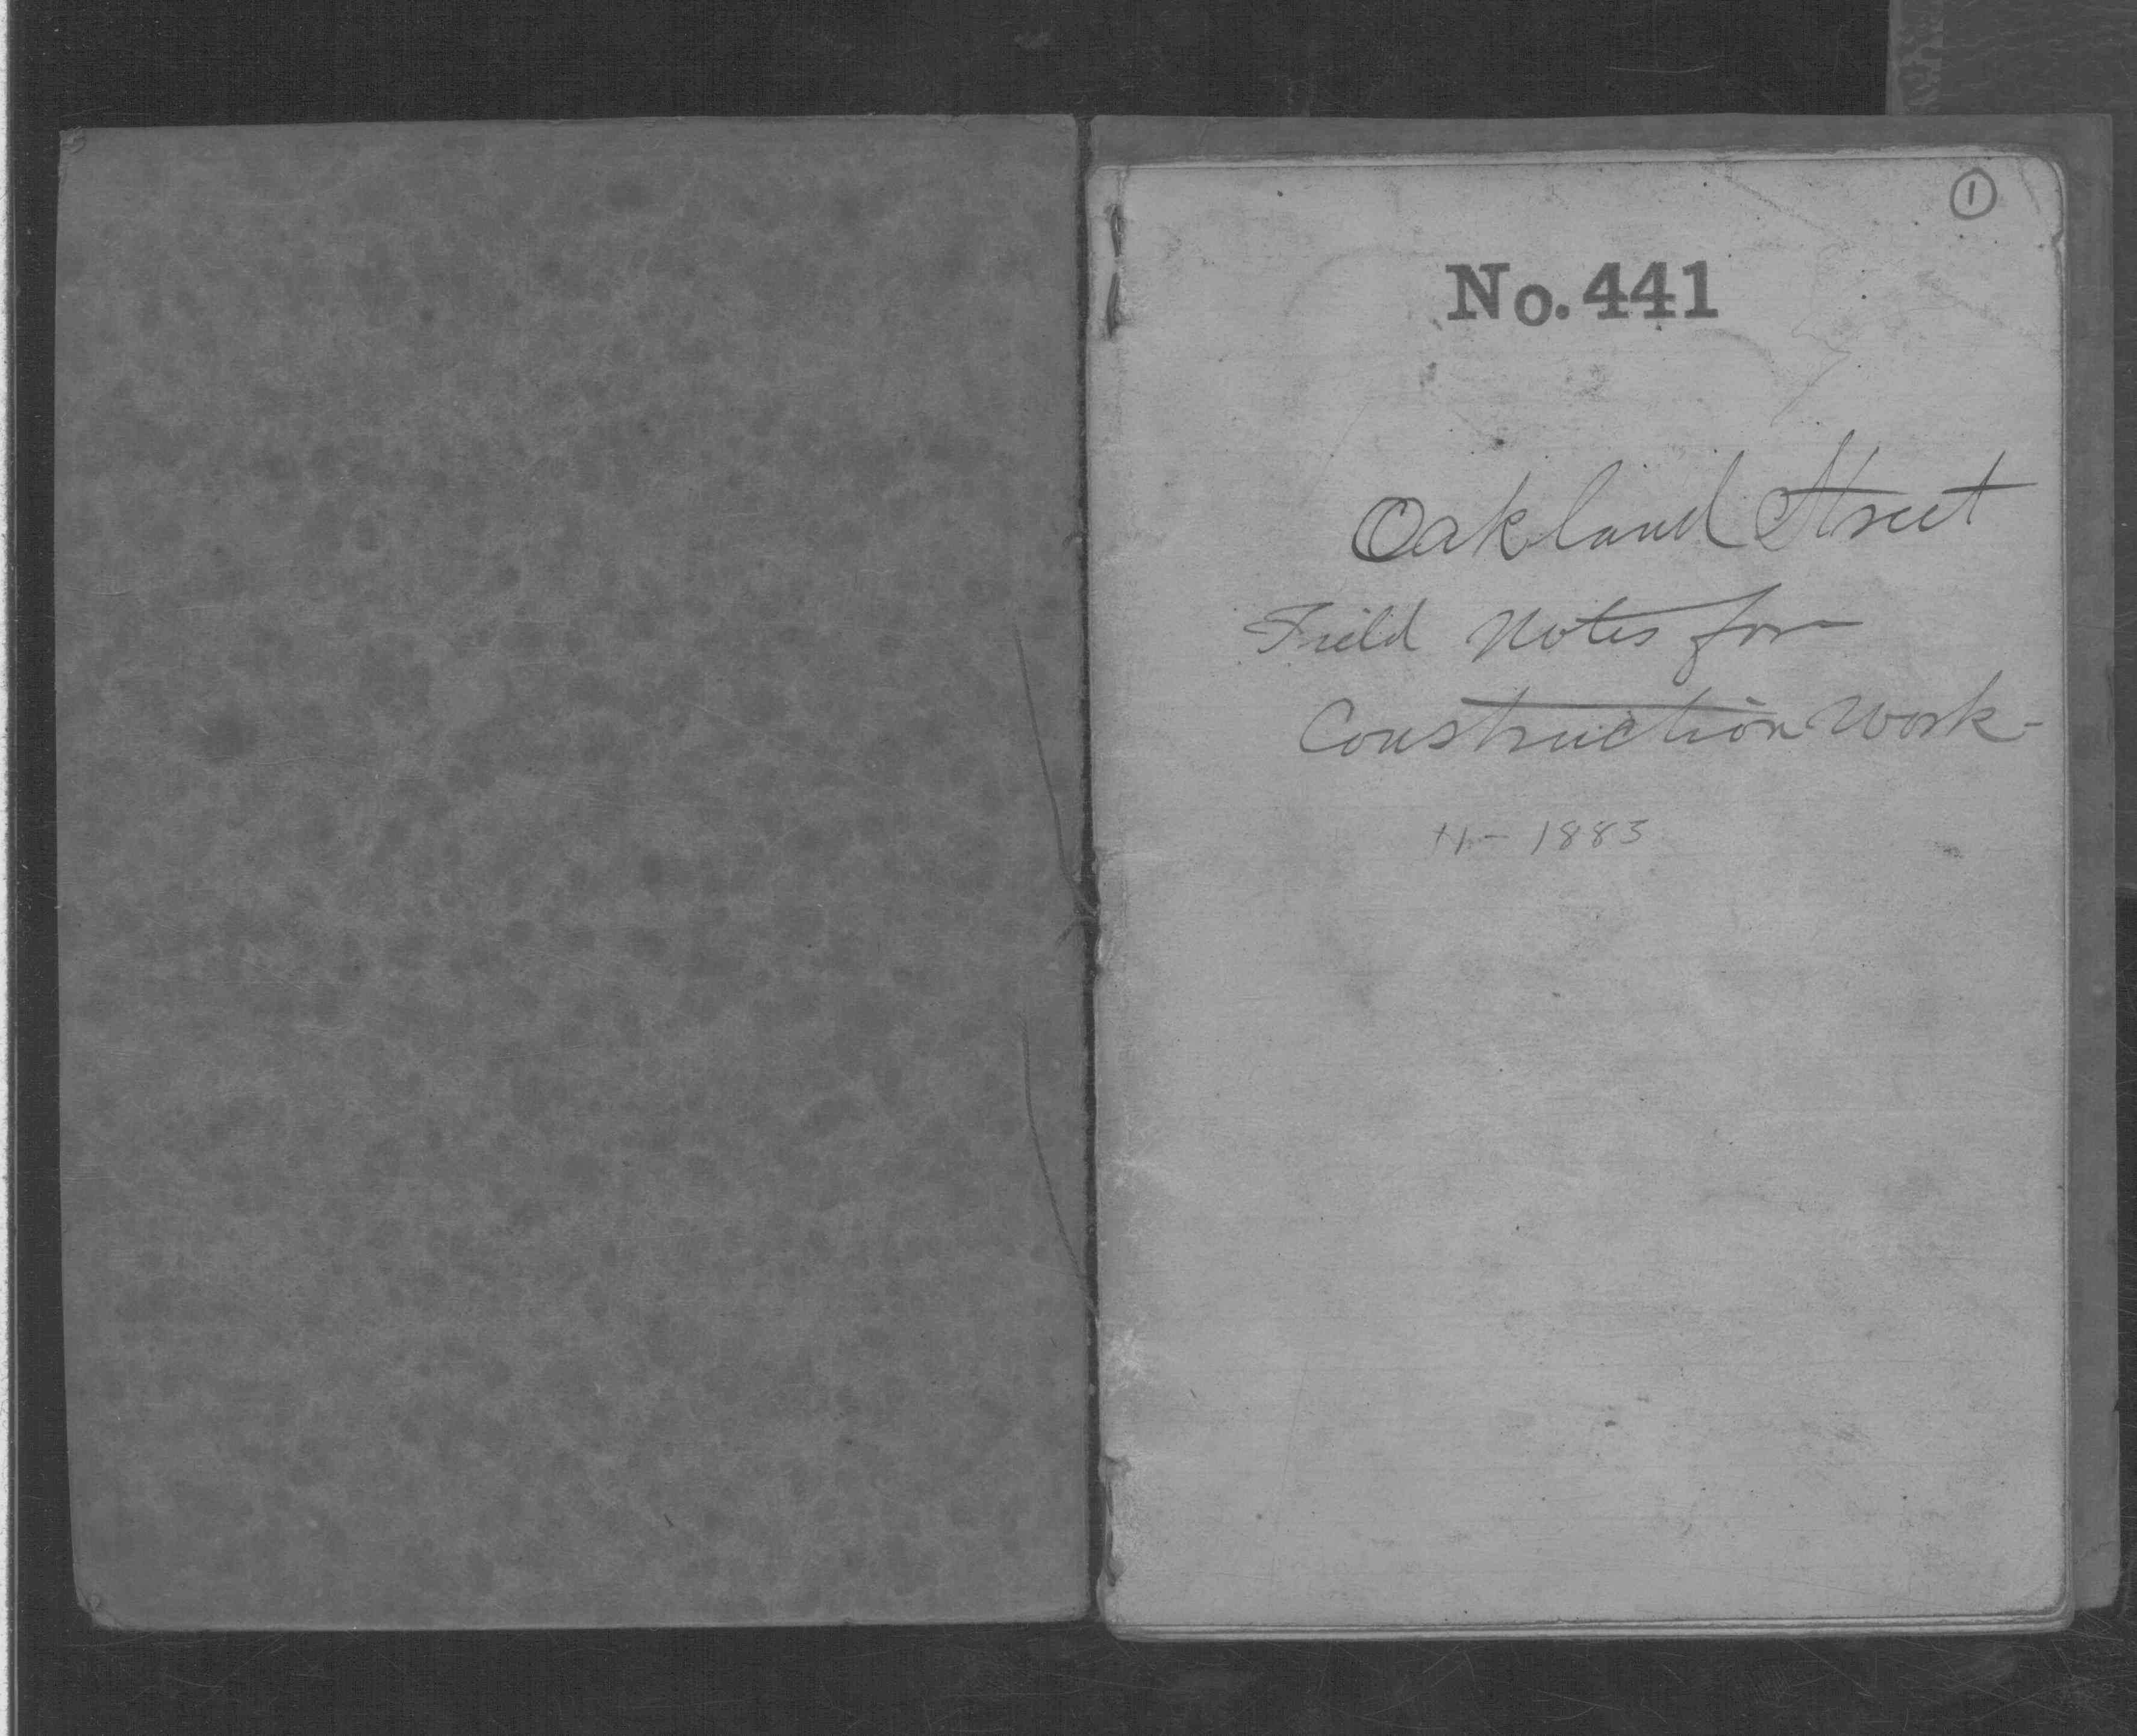 1
No. 441
Oakland Street
Field Notes for
Construction Work-
11- 1883